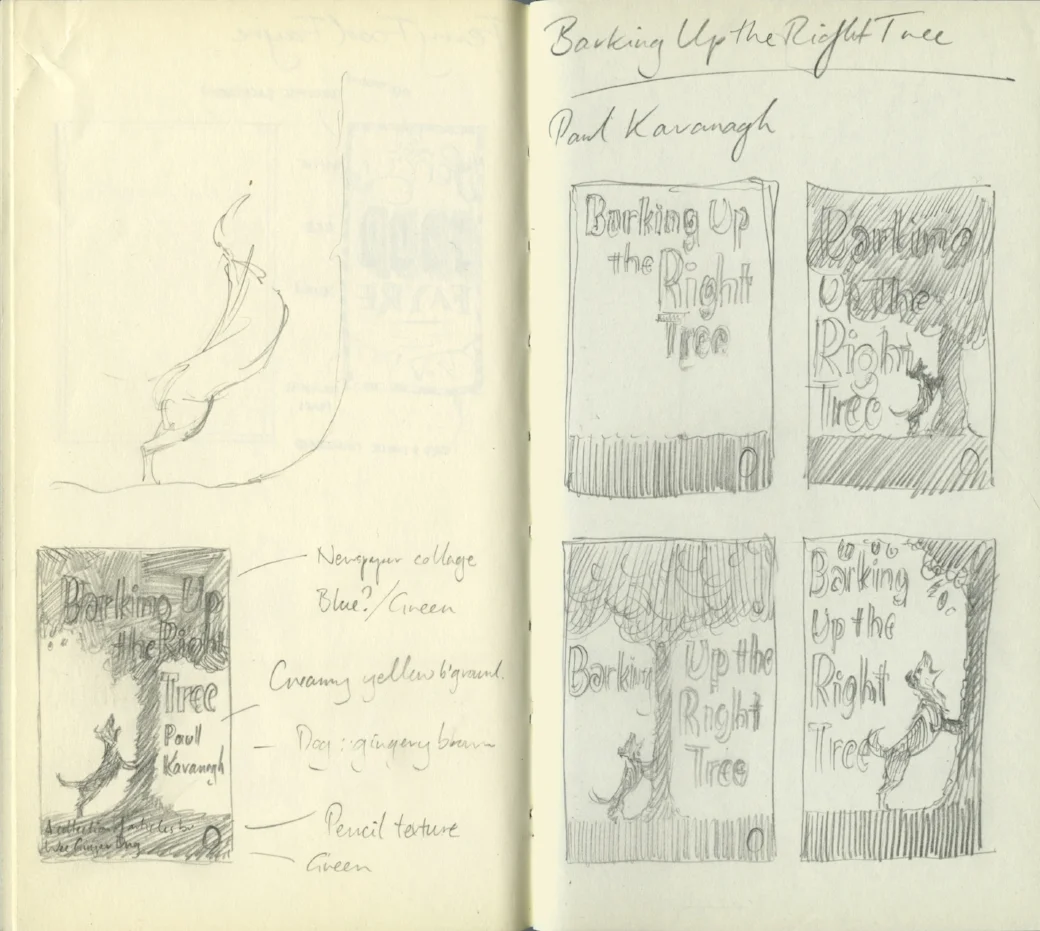 Barking Up
the Right
Tree
Paul
Kavanagh
A collection of articles by
Wee Ginger Dug
Newspaper collage
Blue?/Green
Creamy yellow b'ground.
Dog: gingery brown
Pencil texture
Green
Barking Up the Right Tree
Paul Kavanagh
Barking Up
the Right
Tree
Barking
Up the
Right
Tree
Barking
Up the
Right
Tree
Barking
Up the
Right
Tree